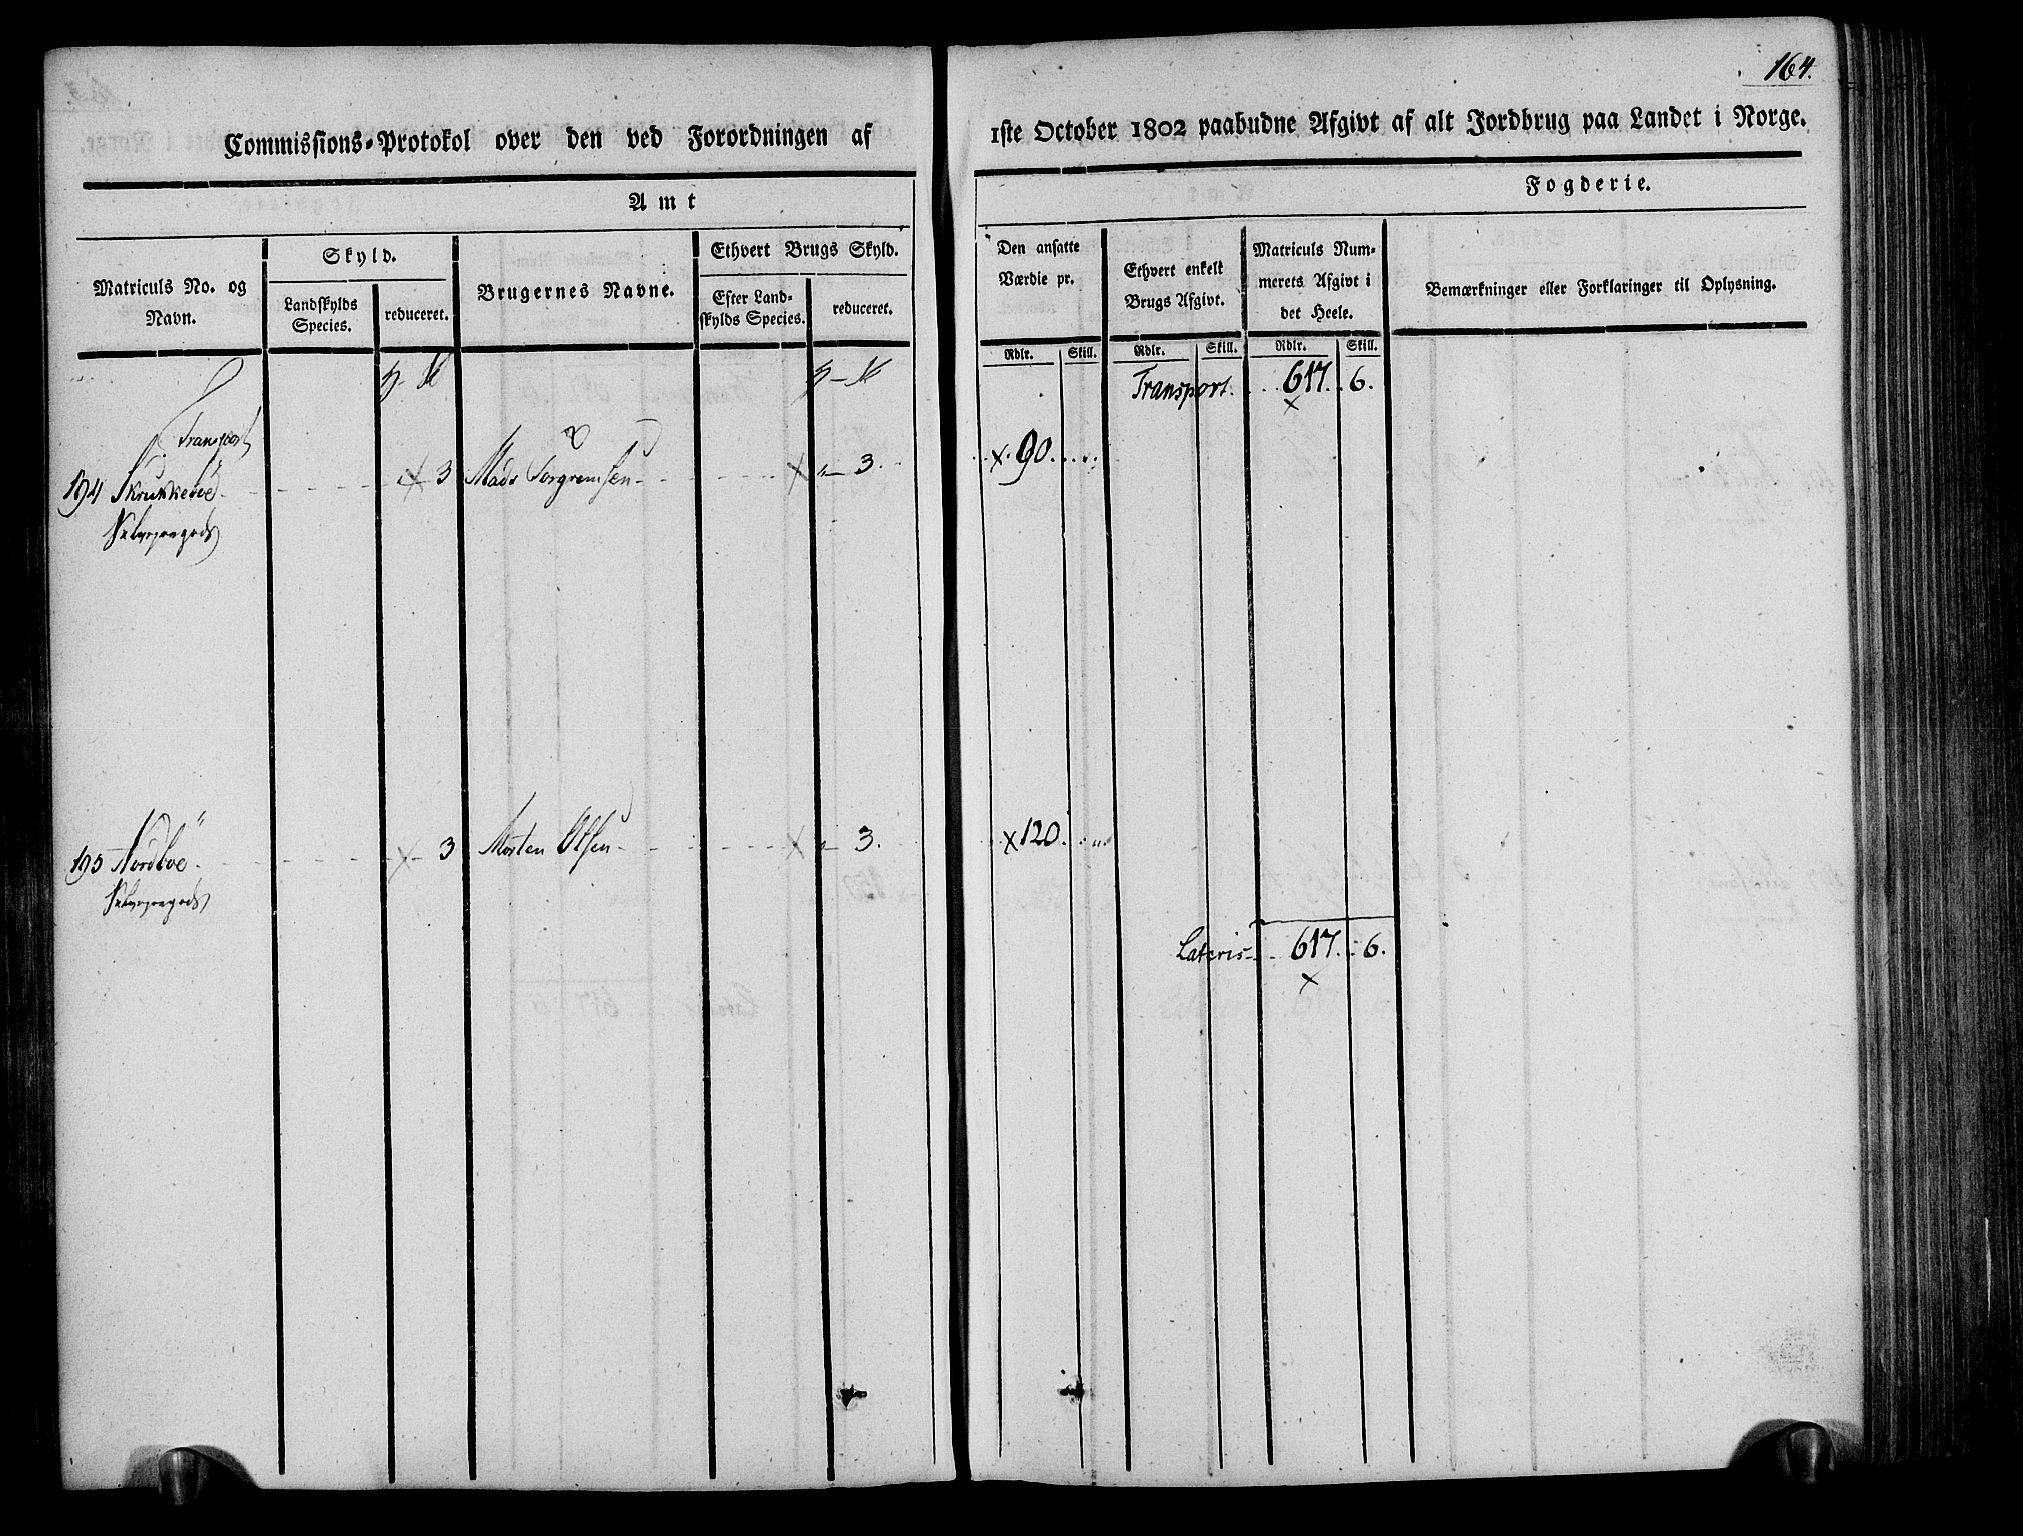 164.
Commissions-Protokol over den ved Forordningen af 1ste October 1802 paabudne Afgivt af alt Jordbrug paa Landet i Norge.
Amt
Fogderie.
Matriculs No. og Navn.
Skyld.
Landskylds Species.
reduceret.
Brugernes Navne.
Ethvert Brugs Skyld.
Efter Landskylds Species.
reduceret.
Den ansatte Værdie pr.
Ethvert enkelt Brugs Afgivt.
Matriculs Nummerets Afgivt i det Heele.
Bemærkninger eller Forklaringer til Oplysning.
Rdlr. Skill. Rdlr. Skill. Rdlr. Skill.
Transport. 617. 6.
Transport
194 Skrukkeröe 3 Mads Torgremsen 3. 90.
195 Nordböe 3 Morten Olsen 3. 120.
Lateris 617. 6.